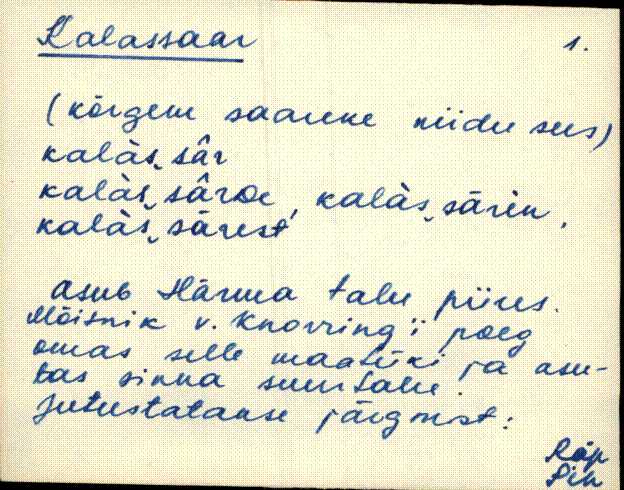 Kalassaar 1.
(kõrgem saareke niidu sees)
kalàs̬ sâr
kalàs̬ sâroe, kalàs̬ sāren,
kalàs̬ sārest
asub Härma talu piires.
Mõisnik v. Knorring'i poeg
omas selle maatüki ja asu-
tas sinna suurtalu.
Jutustatakse järgmist:
Räp